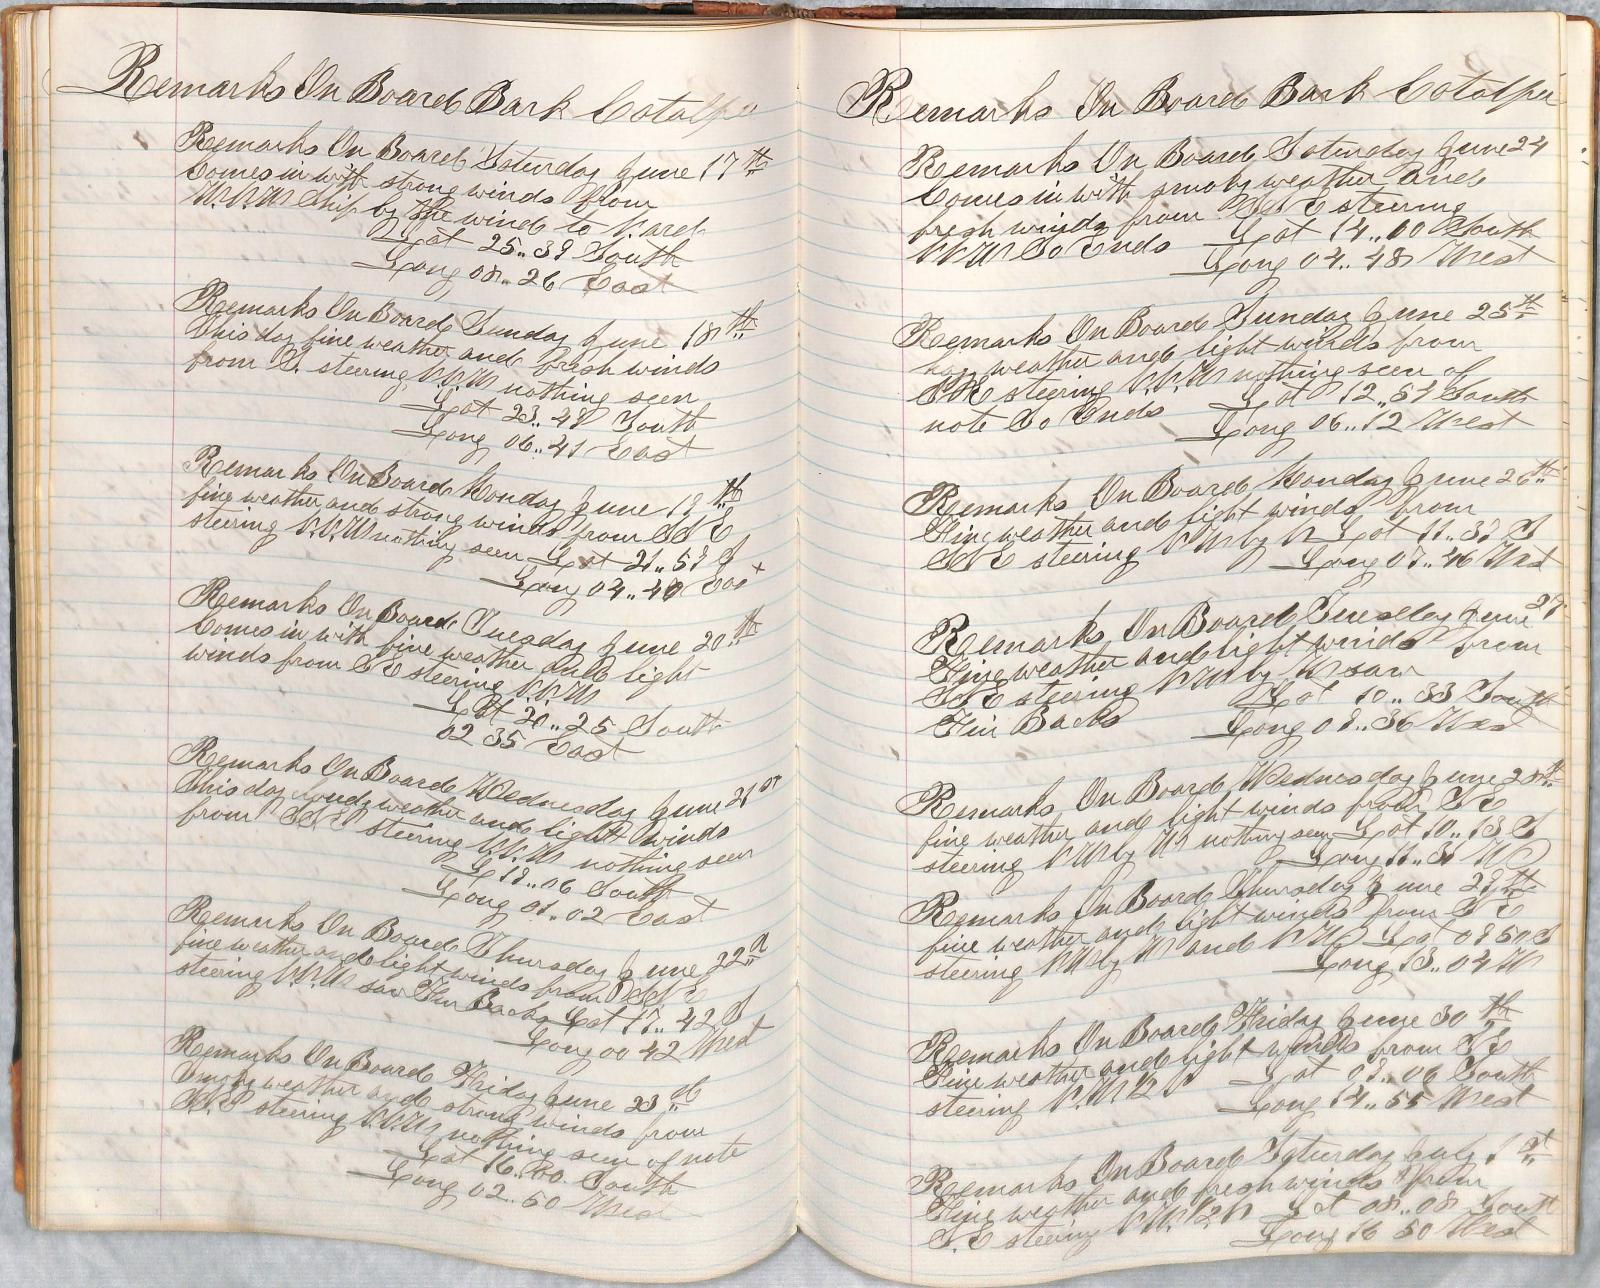 Remarks On Board Bark Catalpa
Remarks On Board Saturday June 17th
Comes in with strong winds from
N.N.W Ship by the wind to Nard
Lat 25..39 South
Long 08..26 East
Remarks On Board Sunday June 18th
This day fine weather and fresh winds
from S. steering N.N.W nothing seen
Lat 23..49 South
Long 06..41 East
Remarks On Board Monday June 19th
fine weather and strong winds from SSE
steering N.N.W nothing seen Lat 21..59 S
Long 04..40 East
Remarks On Board Tuesday June 20th
Comes in with fine weather and light
winds from SE steering N.N.W
Lat 20..25 South
02 35 East
Remarks On Board Wednesday June 21st
This day cloudy weather and light winds
from SSE steering N.N.W nothing seen
L 19..06 South
Long 01..02 East
Remarks On Board Thursday June 22d
fine weather and light winds from SSE
steering N.N.W saw Fin Backs Lat 17..42 S
Long 00 42 West
Remarks On Board Friday June 23d
Smoky weather and strong winds from
S.E steering N.N.W nothing seen of note
Lat 16..00 South
Long 02..50 West
Remarks On Board Bark Catalpa
Remarks On Board Saturday June 24
Comes in with smoky weather and
fresh winds from SSE steering
N.N.W So Ends Lat 14..00 South
Long 04..48 West
Remarks On Board Sunday June 25th
hazy weather and light winds from
SE steering N.N.W nothing seen of
note So Ends Lat 12..59 South
Long 06..12 West
Remarks On Board Monday June 26th
Fine weather and light winds from
SSE steering NW by N Lat 11..39 S
Long 07..46 West
Remarks On Board Tuesday June 27
Fine weather and light winds from
SSE steering NW by W saw
Fin Backs Lat 10..33 South
Long 09..36 West
Remarks On Board Wednesday June 28th
fine weather and light winds from SE
steering NW by W nothing seen Lat 10..13 S
Long 11..31 W
Remarks On Board Thursday June 29th
fine weather and light winds from SE
steering NW by W and NW Lat 09 50 S
Long 13..04 W
Remarks On Board Friday June 30th
Fine weather and light winds from SE
steering N.W 1/2 N Lat 09..06 South
Long 14..55 West
Remarks On Board Saturday July 1st
Fine weather and fresh winds from
S.E steering N.W. 1/2 N Lat 08..08 South
Long 16 50 West